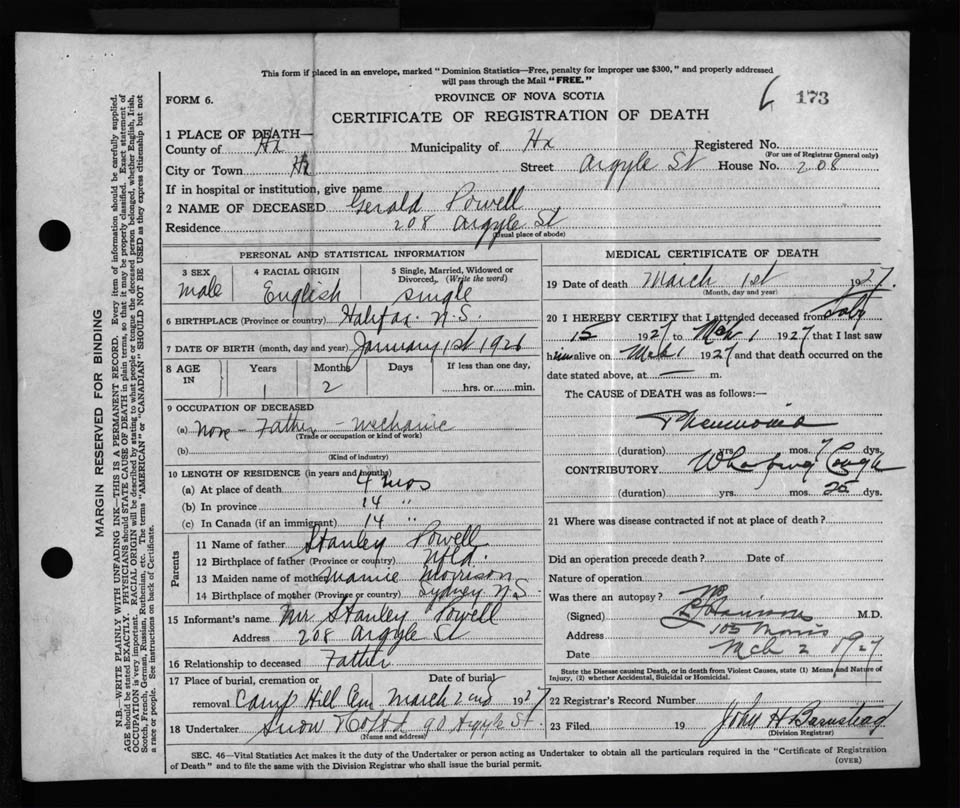 This form if placed in an envelope, marked "Dominion Statistics—Free, penalty for improper use $300," and properly addressed
will pass through the Mail "FREE."
FORM 6.
PROVINCE OF NOVA SCOTIA
173
CERTIFICATE OF REGISTRATION OF DEATH
1 PLACE OF DEATH—
County of Hx Municipality of Hx Registered No.
(For use of Registrar General only)
City or Town Hx Street Argyle St House No. 208
If in hospital or institution, give name
2 NAME OF DECEASED Gerald Powell
Residence 208 Argyle St
(Usual place of abode)
PERSONAL AND STATISTICAL INFORMATION
3 SEX 4 RACIAL ORIGIN 5 Single, Married, Widowed or
Divorced, (Write the word)
Male English single
6 BIRTHPLACE (Province or country) Halifax. N.S.
7 DATE OF BIRTH (month, day and year) January 1st 1926
8 AGE IN Years Months Days If less than one day,
1 2 hrs. or min.
9 OCCUPATION OF DECEASED
(a) None - Father - Mechanic
(Trade or occupation or kind of work)
(b)
(Kind of industry)
10 LENGTH OF RESIDENCE (in years and months)
(a) At place of death 4 mos
(b) In province 14 "
(c) In Canada (if an immigrant) 14 "
Parents
11 Name of father Stanley Powell
12 Birthplace of father (Province or country) Nfld.
13 Maiden name of mother Mamie Morrison
14 Birthplace of mother (Province or country) Sydney N.S.
15 Informant's name Mr Stanley Powell
Address 208 Argyle St
16 Relationship to deceased Father
17 Place of burial, cremation or removal Date of burial
Camp Hill Cem March 2nd 1927
18 Undertaker Snow & Co Ltd 90 Argyle St.
(Name and address)
MEDICAL CERTIFICATE OF DEATH
19 Date of death March 1st 1927.
(Month, day and year)
20 I HEREBY CERTIFY that I attended deceased from Feb
15 1927 to Mch 1 1927 that I last saw
him alive on Mch 1 1927 and that death occurred on the
date stated above, at — m.
The CAUSE of DEATH was as follows:—
Pneumonia
(duration) yrs. mos. 7 dys.
CONTRIBUTORY Whooping Cough
(duration) yrs. mos. 25 dys.
21 Where was disease contracted if not at place of death?
Did an operation precede death? Date of
Nature of operation
Was there an autopsy? No
(Signed) M.D.
Address 103 Morris
Date Mch 2 1927
State the Disease causing Death, or in death from Violent Causes, state (1) Means and Nature of
Injury, (2) whether Accidental, Suicidal or Homicidal.
22 Registrar's Record Number
23 Filed 19 John H Barnstead
(Division Registrar)
SEC. 46—Vital Statistics Act makes it the duty of the Undertaker or person acting as Undertaker to obtain all the particulars required in the "Certificate of Registration
of Death" and to file the same with the Division Registrar who shall issue the burial permit.
(OVER)
MARGIN RESERVED FOR BINDING
N.B.—WRITE PLAINLY WITH UNFADING INK—THIS IS A PERMANENT RECORD. Every item of information should be carefully supplied.
AGE should be stated EXACTLY. PHYSICIANS should STATE CAUSE OF DEATH in plain terms, so that it may be properly classified. Exact statement of
OCCUPATION is very important. RACIAL ORIGIN will be described by stating to what people or tongue the deceased person belonged, whether English, Irish,
Scotch, French, German, Russian, Ruthenian, etc. The terms "AMERICAN" or "CANADIAN" SHOULD NOT BE USED as they express citizenship but not
a race or people. See instructions on back of Certificate.